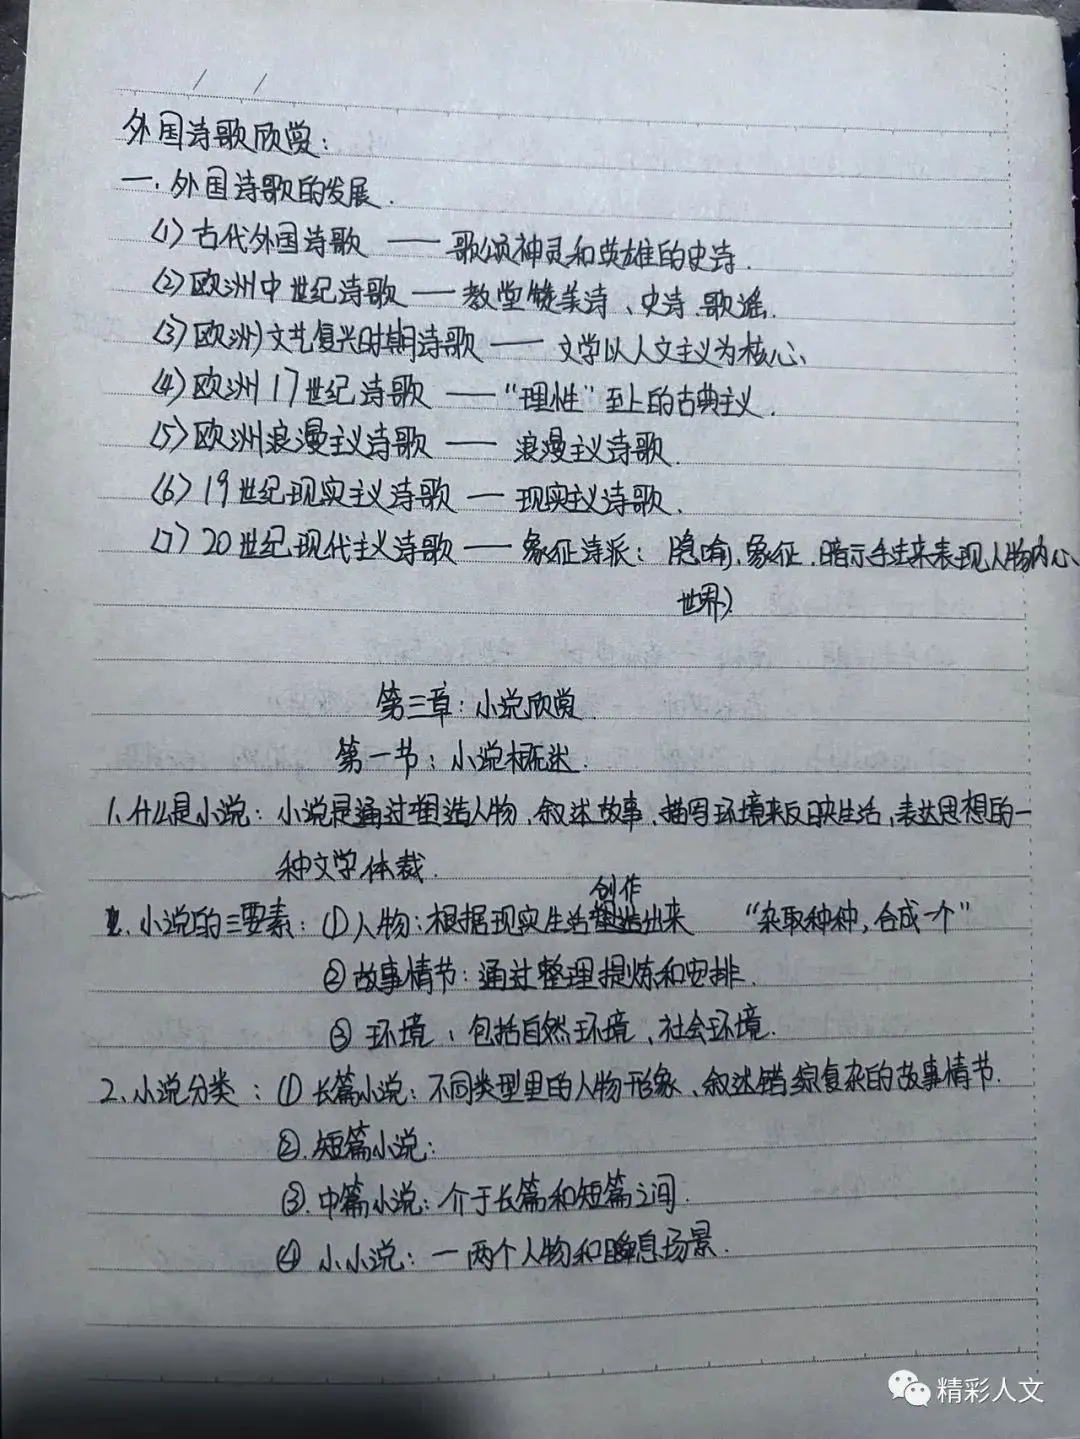 外国诗歌欣赏：
一.外国诗歌的发展.
(1)古代外国诗歌 —— 歌颂神灵和英雄的史诗.
(2)欧洲中世纪诗歌 —— 教堂赞美诗、史诗.歌谣.
(3)欧洲文艺复兴时期诗歌 —— 文学以人文主义为核心、
(4)欧洲17世纪诗歌 —— “理性”至上的古典主义.
(5)欧洲浪漫主义诗歌 —— 浪漫主义诗歌.
(6)19世纪现实主义诗歌 —— 现实主义诗歌.
(7)20世纪现代主义诗歌 —— 象征诗派：隐喻、象征.暗示手法来表现人物内心
世界).
第三章：小说欣赏.
第一节：小说概述.
1.什么是小说：小说是通过塑造人物、叙述故事、描写环境来反映生活,表达思想的一
种文学体裁.
创作
2.小说的三要素：①人物：根据现实生活塑造出来 “杂取种种,合成一个”
②故事情节：通过整理提炼和安排.
③环境：包括自然环境、社会环境.
2、小说分类：①长篇小说：不同类型里的人物形象、叙述错综复杂的故事情节.
②.短篇小说：
③.中篇小说：介于长篇和短篇之间.
④小小说：一两个人物和瞬息场景.
精彩人文